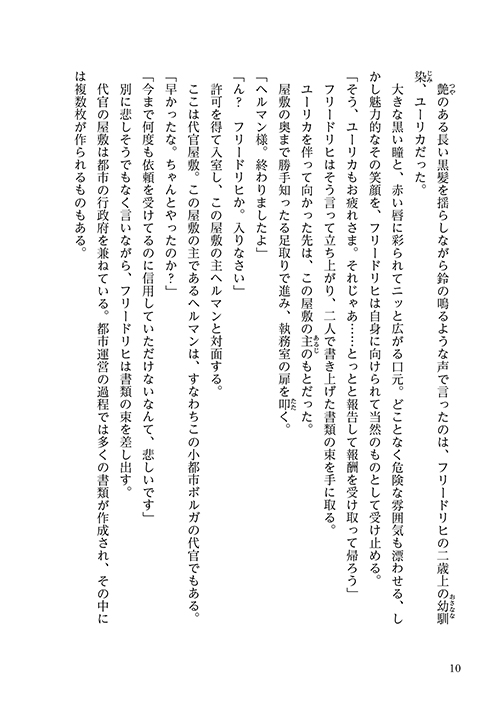 艶のある長い黒髪を揺らしながら鈴の鳴るような声で言ったのは、フリードリヒの二歳上の幼馴
染、ユーリカだった。
大きな黒い瞳と、赤い唇に彩られてニッと広がる口元。どことなく危険な雰囲気も漂わせる、し
かし魅力的なその笑顔を、フリードリヒは自身に向けられて当然のものとして受け止める。
「そう、ユーリカもお疲れさま。それじゃあ……とっとと報告して報酬を受け取って帰ろう」
フリードリヒはそう言って立ち上がり、二人で書き上げた書類の束を手に取る。
ユーリカを伴って向かった先は、この屋敷の主のもとだった。
屋敷の奥まで勝手知ったる足取りで進み、執務室の扉を叩く。
「ヘルマン様。終わりましたよ」
「ん？　フリードリヒか。入りなさい」
許可を得て入室し、この屋敷の主ヘルマンと対面する。
ここは代官屋敷。この屋敷の主であるヘルマンは、すなわちこの小都市ボルガの代官でもある。
「早かったな。ちゃんとやったのか？」
「今まで何度も依頼を受けてるのに信用していただけないなんて、悲しいです」
別に悲しそうでもなく言いながら、フリードリヒは書類の束を差し出す。
代官の屋敷は都市の行政府を兼ねている。都市運営の過程では多くの書類が作成され、その中に
は複数枚が作られるものもある。
10